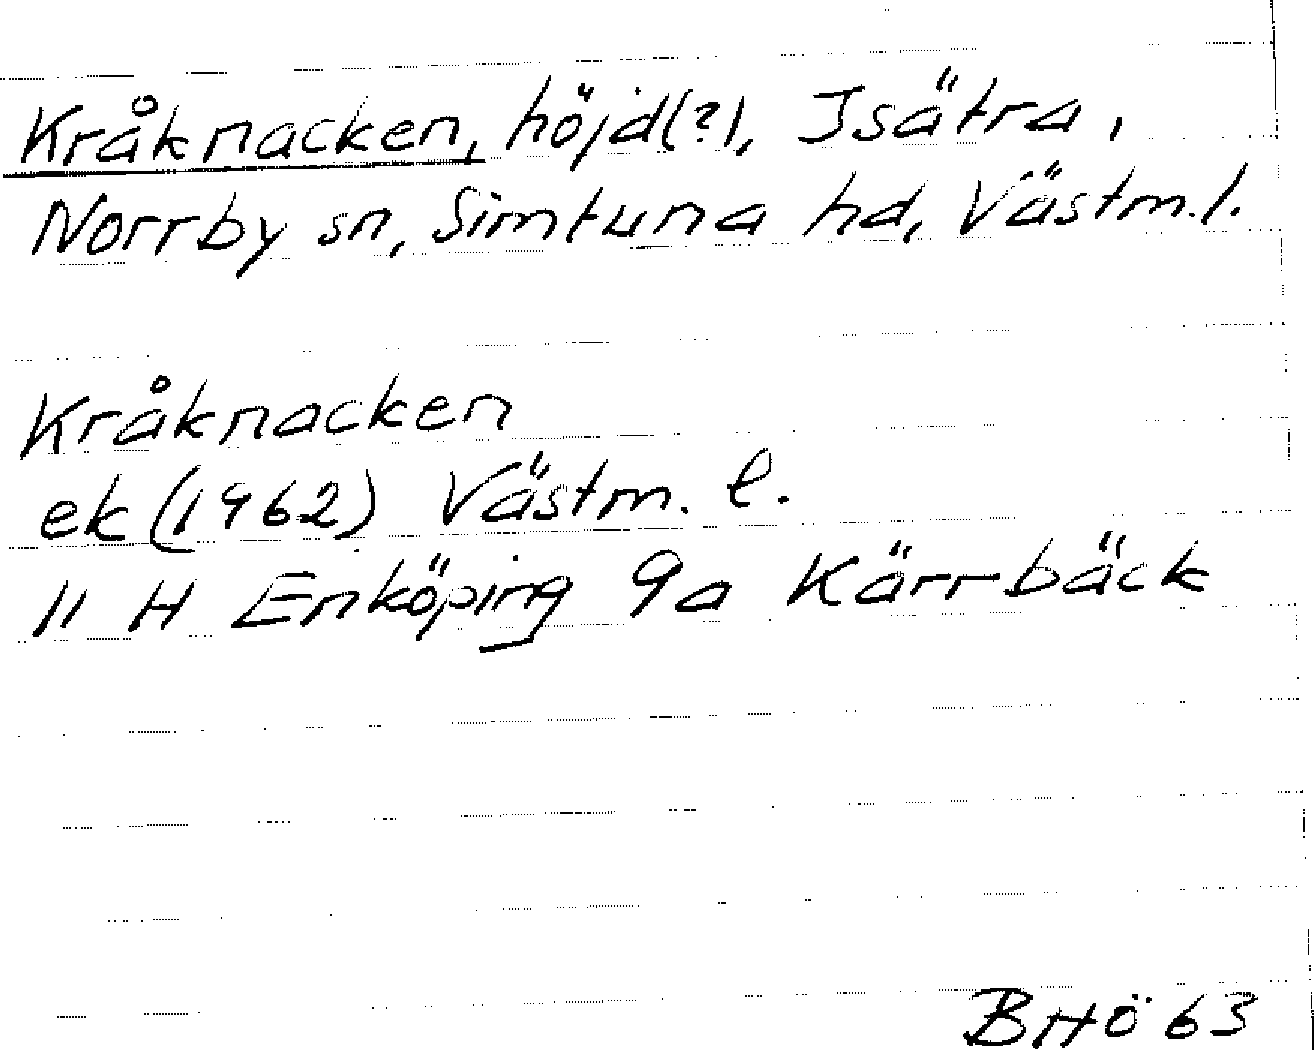 Kråknacken, höjd(?), Isätra,
Norrby sn, Simtuna hd, Västm.l.
Kråknacken
ek (1962) Västm. l.
11 H Enköping 9a Kärrbäck
BHÖ 63